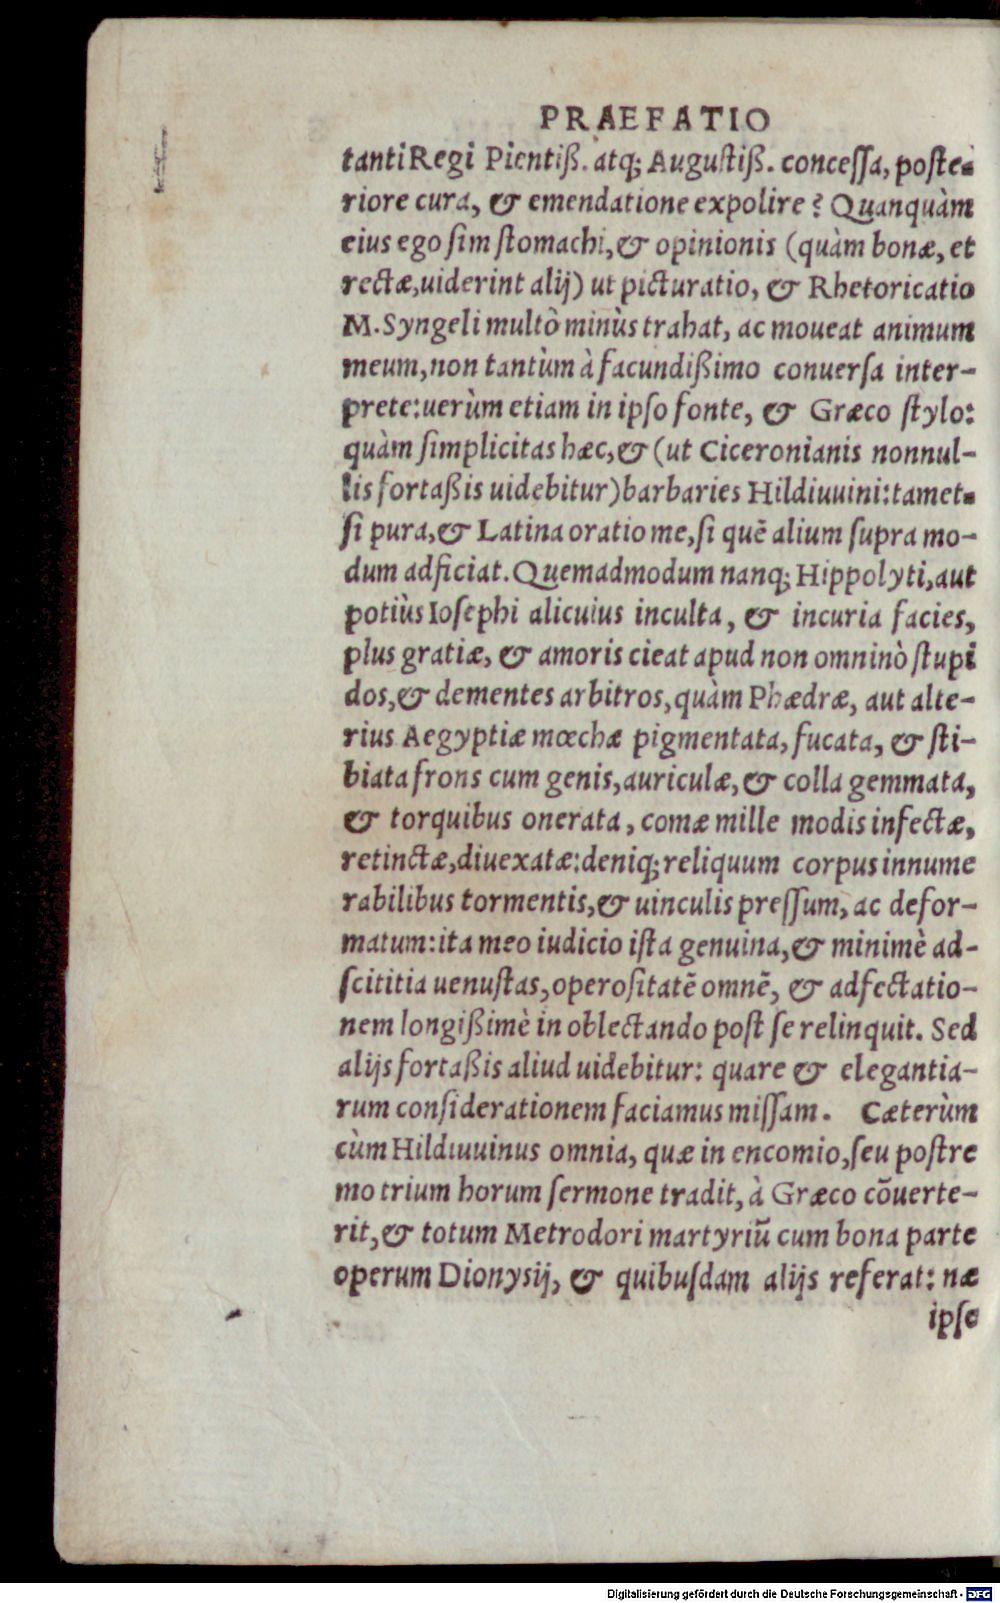 PRAEFATIO
tanti Regi Pientiß. atq; Auguſtiß. conceſſa, poſte-
riore cura, & emendatione expolire? Quanquàm
eius ego ſim ſtomachi, & opinionis (quàm bonæ, et
rectæ, uiderint alij) ut picturatio, & Rhetoricatio
M. Syngeli multò minùs trahat, ac moueat animum
meum, non tantùm à facundißimo conuerſa inter-
prete: uerùm etiam in ipſo fonte, & Græco ſtylo:
quàm ſimplicitas hæc, & (ut Ciceronianis nonnul-
lis fortaßis uidebitur) barbaries Hildiuuini: tamet-
ſi pura, & Latina oratio me, ſi quē alium ſupra mo-
dum adficiat. Quemadmodum nanq; Hippolyti, aut
potiùs Ioſephi alicuius inculta, & incuria facies,
plus gratiæ, & amoris cieat apud non omninò ſtupi
dos, & dementes arbitros, quàm Phædræ, aut alte-
rius Aegyptiæ mœchæ pigmentata, fucata, & ſti-
biata frons cum genis, auriculæ, & colla gemmata,
& torquibus onerata, comæ mille modis infectæ,
retinctæ, diuexatæ: deniq; reliquum corpus innume
rabilibus tormentis, & uinculis preſſum, ac defor-
matum: ita meo iudicio iſta genuina, & minimè ad-
ſcititia uenuſtas, operoſitatē omnē, & adfectatio-
nem longißimè in oblectando poſt ſe relinquit. Sed
alijs fortaßis aliud uidebitur: quare & elegantia-
rum conſiderationem faciamus miſſam. Cæterùm
cùm Hildiuuinus omnia, quæ in encomio, ſeu poſtre
mo trium horum ſermone tradit, à Græco cōuerte-
rit, & totum Metrodori martyriū cum bona parte
operum Dionysij, & quibuſdam alijs referat: næ
ipſe
Digitalisierung gefördert durch die Deutsche Forschungsgemeinschaft - DFG